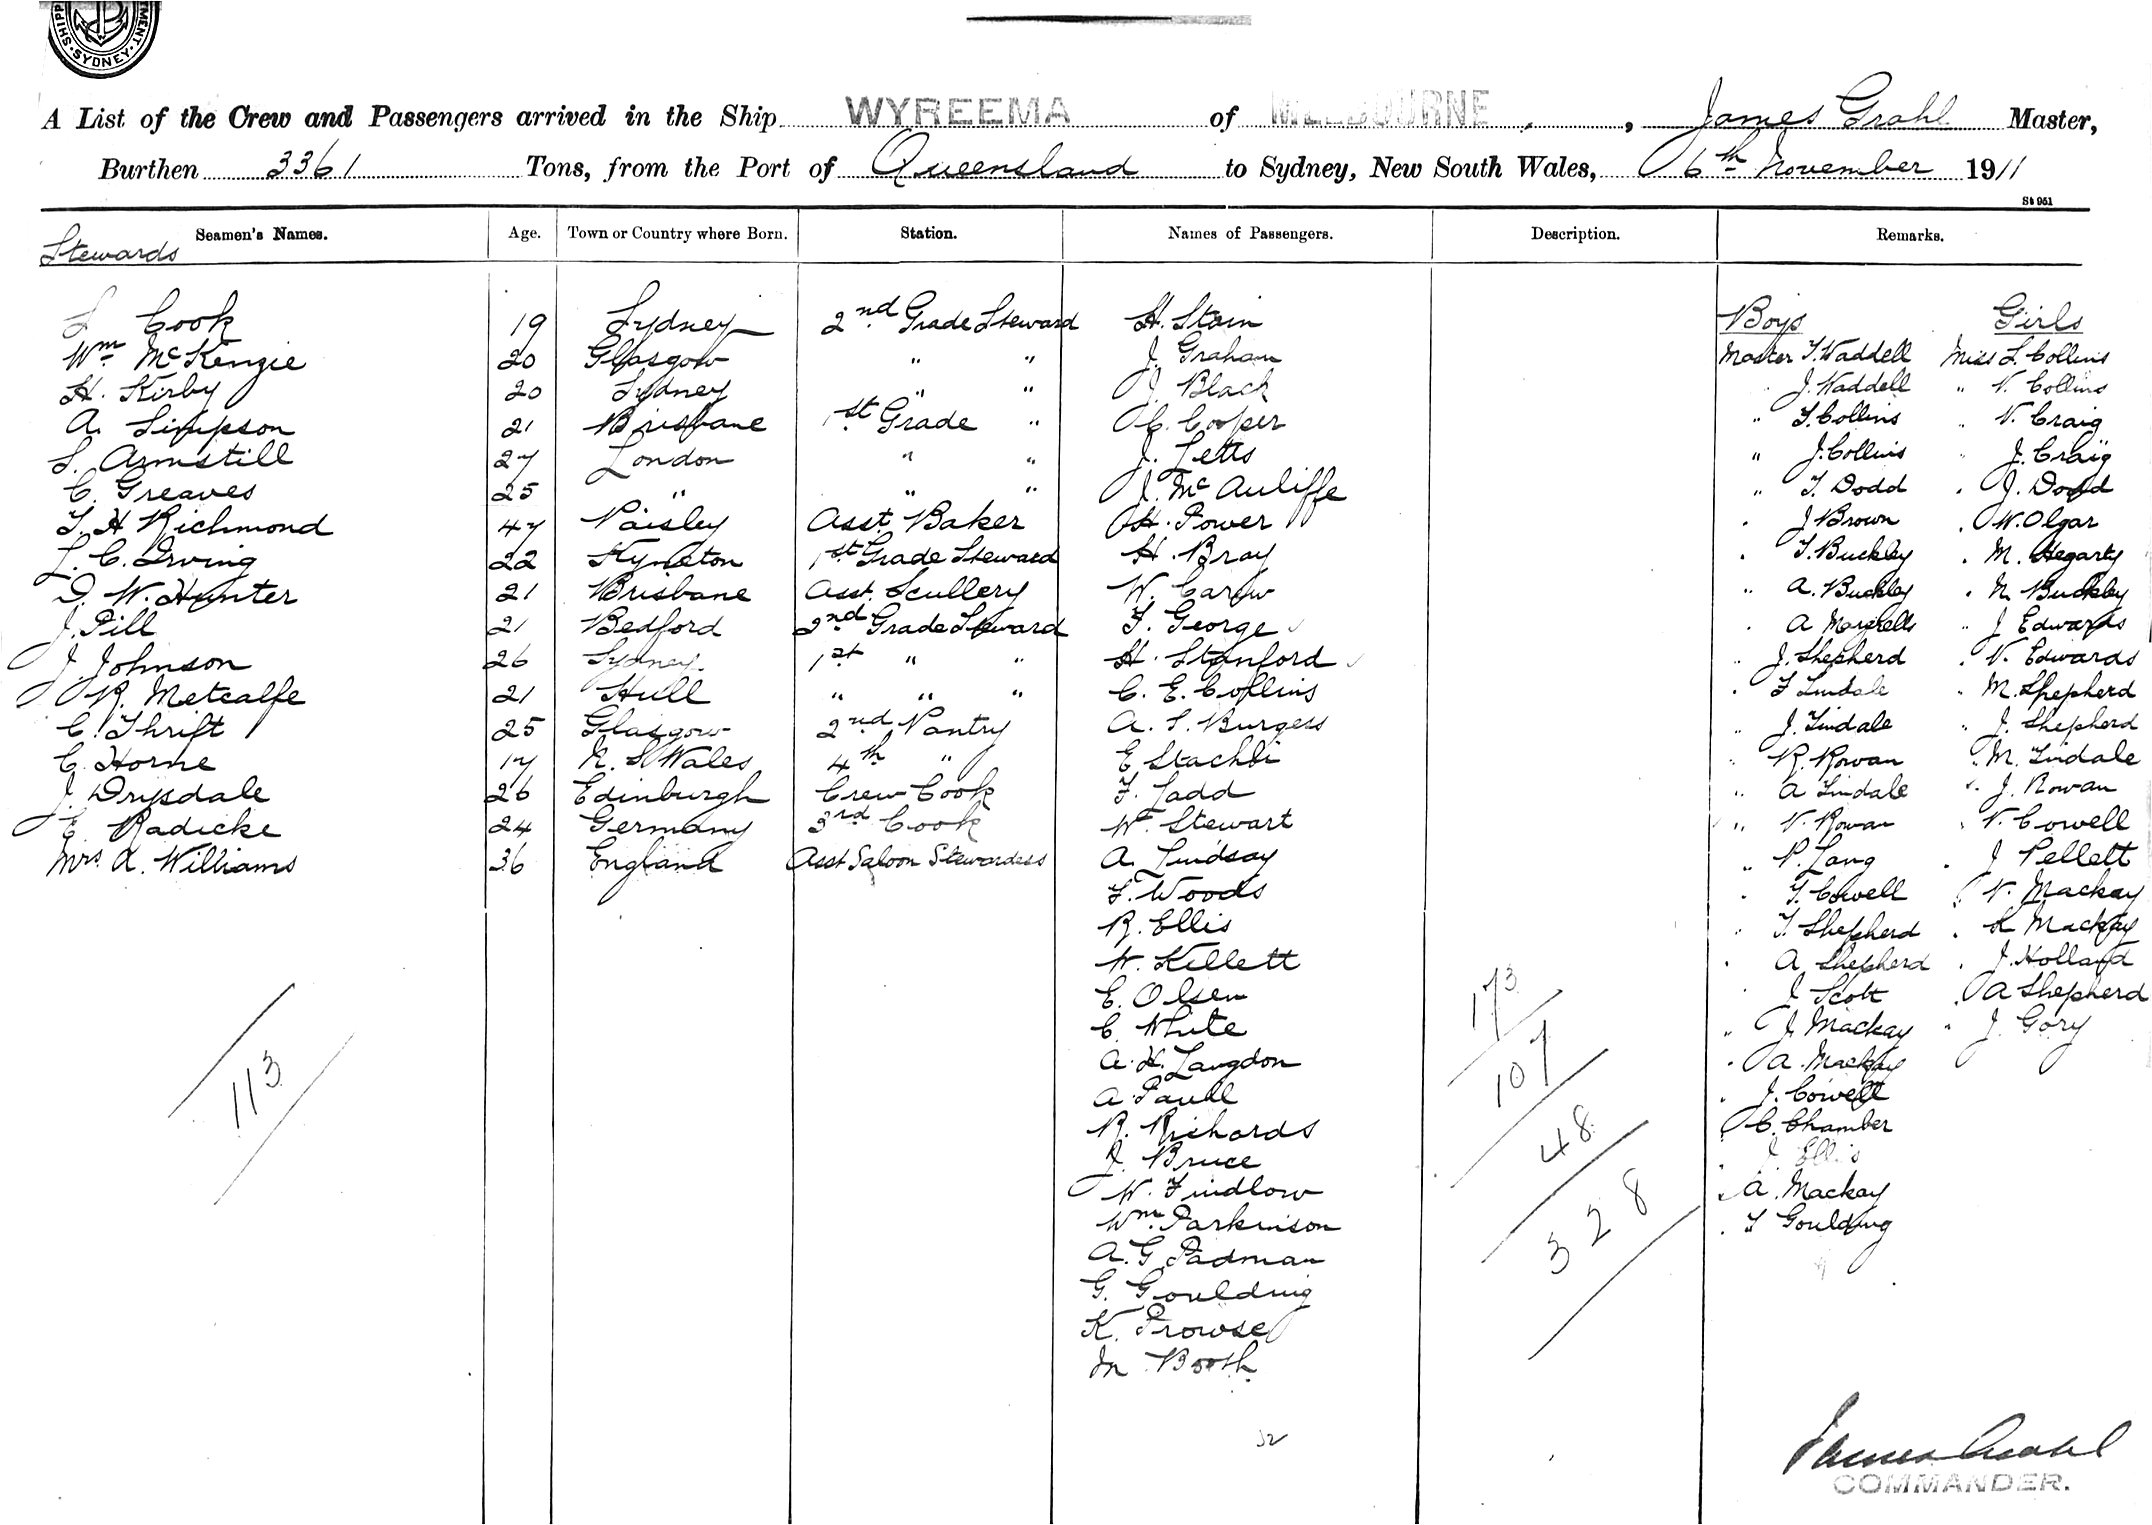 SHIPP
MENT. SYDNEY.
A List of the Crew and Passengers arrived in the Ship WYREEMA of MELBOURNE, James Grahl Master,
Burthen 3361 Tons, from the Port of Queensland to Sydney, New South Wales, 6th November 1911
St 951
Seamen's Names. Age. Town or Country where Born. Station. Names of Passengers. Description. Remarks.
Stewards
Cook 19 Sydney 2nd Grade Steward H. Stain Boys Girls
Wm McKenzie 20 Glasgow " " J. Graham Master T. Waddell Miss L. Collins
H. Kirby 20 Sydney " " J. Black J. Waddell " V. Collins
A. Simpson 21 Brisbane 1st Grade " C. Cooper " T. Collins " V. Craig
S. Armstill 27 London " " J. Letts " J. Collins " J. Craig
C. Greaves 25 " " " J. McAuliffe " T. Dodd " J. Dodd
T. H Richmond 47 Paisley Asst. Baker H. Power " J Brown " W. Olgar
L. C. Irving 22 Kyneton 1st Grade Steward H. Bray " T. Buckley " M. Hegarty
D. W. Hunter 21 Brisbane Asst. Scullery W. Carew " A. Buckley " N Buckley
J. Pill 21 Bedford 2nd Grade Steward T. George " A " J Edwards
J. Johnson 26 Sydney 1st " " H. Stanford " J. Shepherd " V. Edwards
R. Metcalfe 21 Hull " " " C. E. Collins " T Tindale " M. Shepherd
C. Thrift 25 Glasgow 2nd Pantry A. S. Burgess " J. Tindale " J. Shepherd
C. Horne 17 N. S Wales 4th " E " R. Rowan " M. Tindale
J. Drysdale 26 Edinburgh Crew Cook F. Ladd " A Tindale " J. Rowan
E. Radicke 24 Germany 3rd Cook W. Stewart " V. Rowan " V. Cowell
Mrs. A. Williams 36 England Asst Saloon Stewardess A. Lindsay " P. Lang " J Pellett
F. Woods " T. Cowell " V. Mackay
R. Ellis " T. Shepherd " K Mackay
W. Kellett " A. Shepherd " J. Holland
E. Olsen " J Scott " A Shepherd
C. White " J Mackay " J. Gory
A. H. Langdon " A. Mackay
A. Paull " J. Cowell
R. Richards " C. Chamber
J. Bruce " J Ellis
W. Findlow " A. Mackay
Wm. Parkinson " T Goulding
A. G Padman
G. Goulding
K. Prowse
M Booth
113
173
107
48
328
32
James Grahl
COMMANDER.